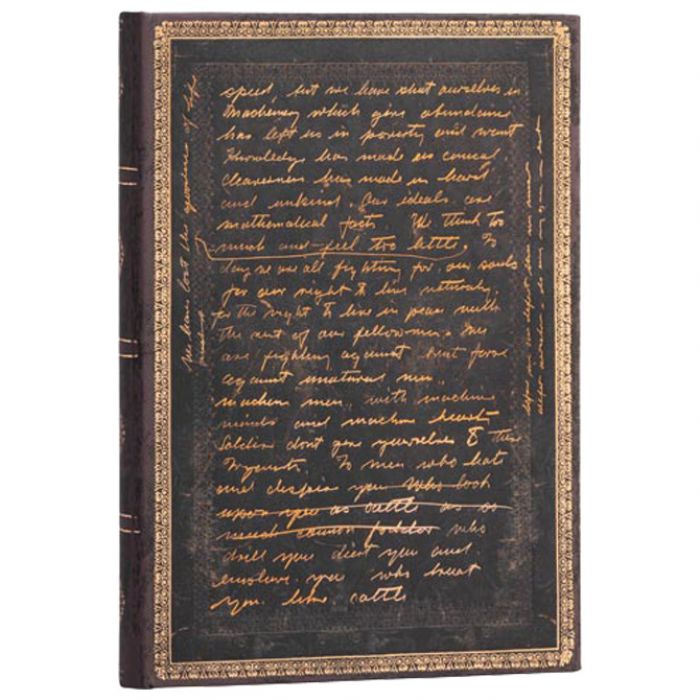 speed, but we have shut ourselves in
Machenery which gives abundance
has left us in poverty and want
Knowledge has made us
cleaverness has made us hard
and unkind. Our ideals are
mathematical facts We think too
much and feel too little. To
day we are all fighting for our souls
for our right to live naturaly
for the right to live in peace with
the rest of our fellow men. We
are fighting against brut force
against unatural men,
machine men, with machine
minds and machine hearts
Soldiers dont give yourselves to these
Tryants. To men who hate
and despise you who look
upon you as cattle as so
much cannon fodder who
drill you diet you and
enslave you who treat
you like cattle
We have lost the of life